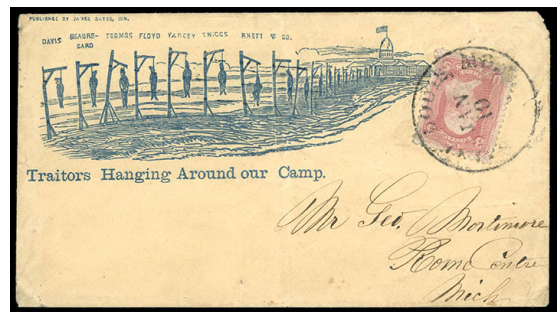 PUBLISHED BY JAMES GATES, CIN.
DAVIS BEAURE- TOOMBS FLOYD YANCEY TWIGGS RHETT & CO.
GARD
Traitors Hanging Around our Camp.
Mr Geo. Mortimore
Rome Centre
Mich